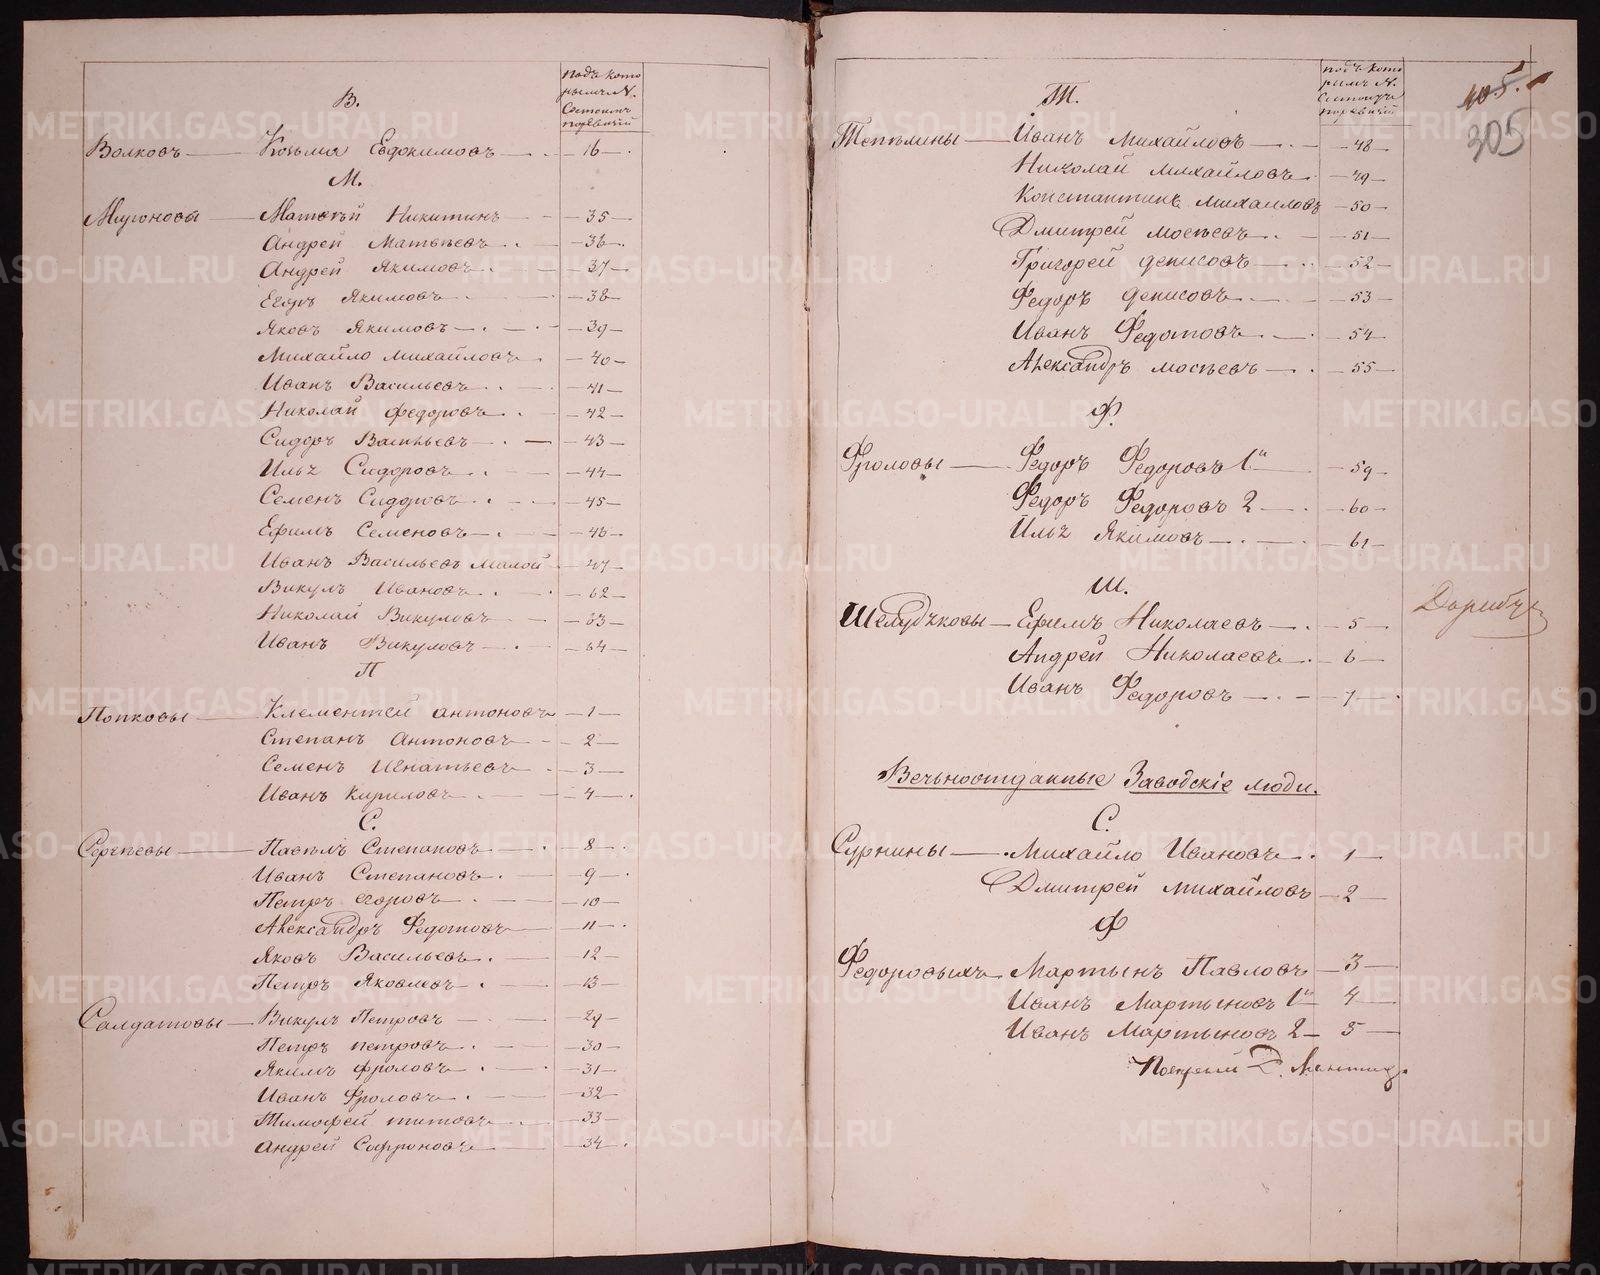 Подъ кото
рымъ №.
Состоитъ
по ревизіи
В.
Волковъ — Козьма Евдокимовъ — 16
М.
Матвѣй Никитинъ — 35 —
Андрей Матвѣевъ — 36 —
Андрей Якимовъ — 37 —
Егоръ Якимовъ — 38 —
Яковъ Якимовъ — 39 —
Михайло Михайловъ — 40 —
Иванъ Васильевъ — 41 —
Николай Федоровъ — 42 —
Сидоръ Васильевъ — 43 —
Илья Сидоровъ — 44 —
Семенъ Сидоровъ — 45 —
Ефимъ Семеновъ — 46 —
Иванъ Васильевъ Малой — 47 —
Викулъ Ивановъ — 62 —
Николай Викуловъ — 63 —
Иванъ Викуловъ — 64 —
П
Попковы — Клементей Антоновъ — 1 —
Степанъ Антоновъ — 2 —
Семенъ Игнатьевъ — 3 —
Иванъ Кириловъ — 4 —
С.
Сергѣевы — Павелъ Степановъ — 8
Иванъ Степановъ — 9 —
Петръ Егоровъ — 10 —
Александръ Федотовъ — 11 —
Яковъ Васильевъ — 12 —
Петръ Яковлевъ — 13 —
Салдатовы — Викулъ Петровъ — 29 —
Петръ Петровъ — 30 —
Якимъ Фроловъ — 31 —
Иванъ Фроловъ — 32 —
Тимофей Титовъ — 33 —
Андрей Софроновъ — 34 —
подъ кото
рымъ №.
Состоитъ
по ревизіи
105.
305
Т.
Иванъ Михайловъ — 48 —
Николай Михайловъ — 49 —
Константинъ Михайловъ — 50 —
Дмитрей Мосѣевъ — 51 —
Григорей Денисовъ — 52 —
Федоръ Денисовъ — 53 —
Иванъ Федотовъ — 54 —
Александръ Мосѣевъ — 55 —
Ф.
Фроловы — Федоръ Федоровъ 1й — 59 —
Федоръ Федоровъ 2 — 60 —
Илья Якимовъ — 61 —
Ш.
Шелудьковы — Ефимъ Николаевъ — 5 —
Андрей Николаевъ — 6 —
Иванъ Федоровъ — 7 —
Вечьноотданные Заводскіе люди.
С.
Сурнины — Михайло Ивановъ 1 —
Дмитрей Михайловъ — 2 —
Ф
Федоровыхъ Мартынъ Павловъ — 3 —
Иванъ Мартыновъ 1й — 4 —
Иванъ Мартыновъ 2 — 5 —
METRIKI.GASO-URAL.RU